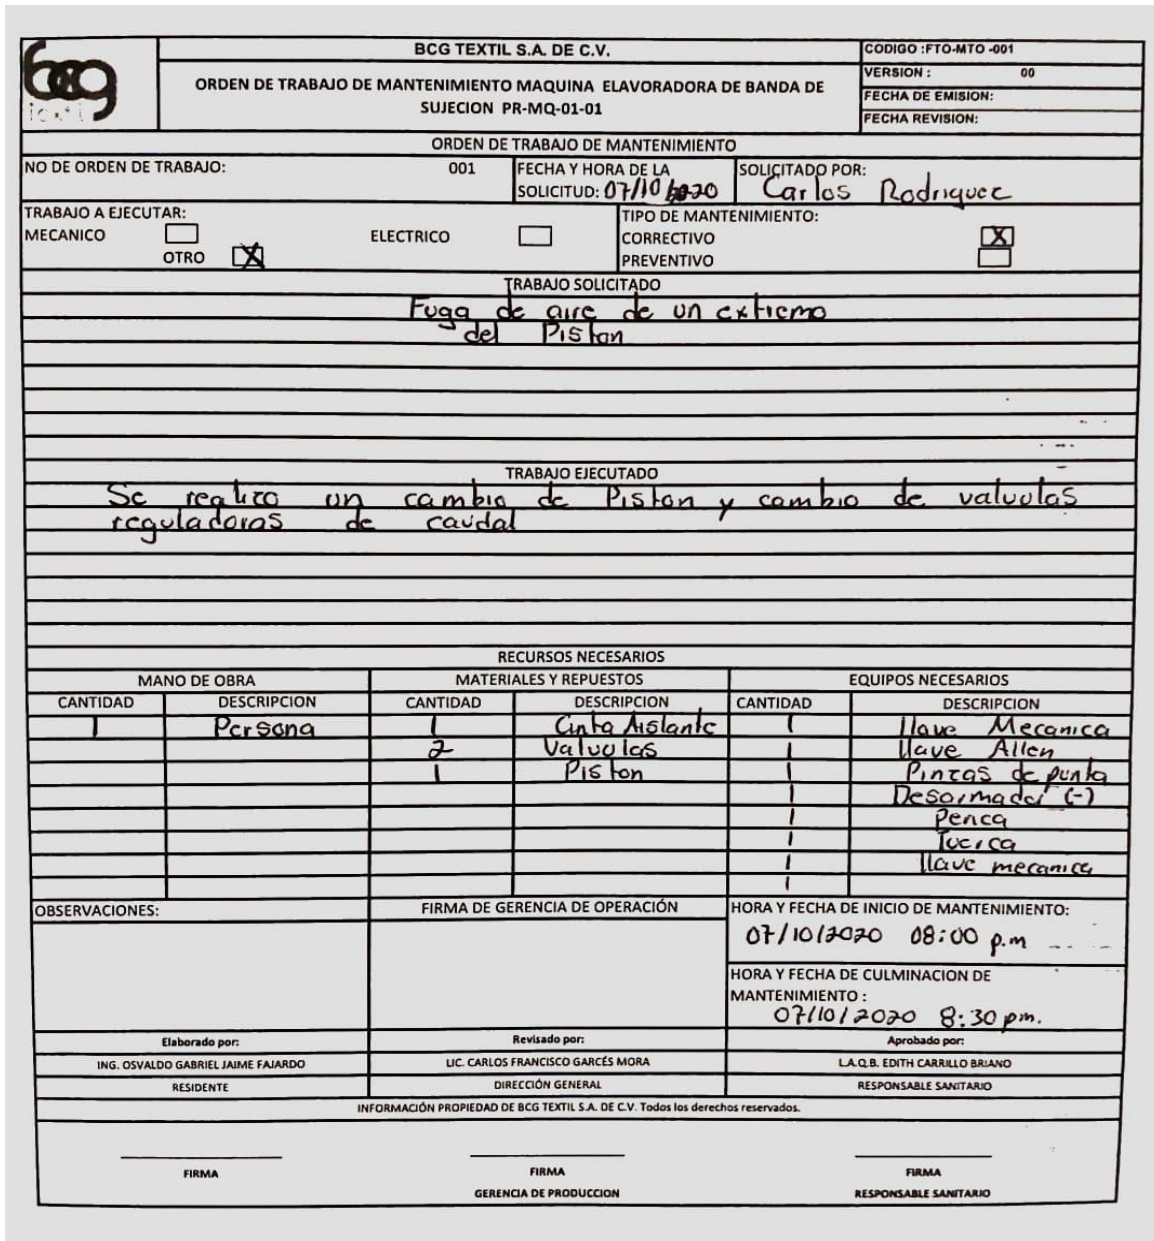 bcg
textil
BCG TEXTIL S.A. DE C.V.
ORDEN DE TRABAJO DE MANTENIMIENTO MAQUINA ELAVORADORA DE BANDA DE
SUJECION PR-MQ-01-01
CODIGO :FTO-MTO -001
VERSION : 00
FECHA DE EMISION:
FECHA REVISION:
ORDEN DE TRABAJO DE MANTENIMIENTO
NO DE ORDEN DE TRABAJO: 001
FECHA Y HORA DE LA
SOLICITUD: 07/10/2020
SOLICITADO POR:
Carlos Rodriguez
TRABAJO A EJECUTAR:
MECANICO ELECTRICO
OTRO X
TIPO DE MANTENIMIENTO:
CORRECTIVO X
PREVENTIVO
TRABAJO SOLICITADO
Fuga de aire de un extremo
del Piston
TRABAJO EJECUTADO
Se realizo un cambio de Piston y cambio de valvulas
reguladoras de caudal
RECURSOS NECESARIOS
MANO DE OBRA MATERIALES Y REPUESTOS EQUIPOS NECESARIOS
CANTIDAD DESCRIPCION CANTIDAD DESCRIPCION CANTIDAD DESCRIPCION
1 Persona 1 Cinta Aislante 1 llave Mecanica
2 Valvulas 1 llave Allen
1 Piston 1 Pinzas de punta
1 Desarmador (-)
1 Perica
1 Tuerca
1 llave mecanica
1
OBSERVACIONES:
FIRMA DE GERENCIA DE OPERACIÓN
HORA Y FECHA DE INICIO DE MANTENIMIENTO:
07/10/2020 08:00 p.m
HORA Y FECHA DE CULMINACION DE
MANTENIMIENTO :
07/10/2020 8:30 pm.
Elaborado por: Revisado por: Aprobado por:
ING. OSVALDO GABRIEL JAIME FAJARDO LIC. CARLOS FRANCISCO GARCÉS MORA L.A.Q.B. EDITH CARRILLO BRIANO
RESIDENTE DIRECCIÓN GENERAL RESPONSABLE SANITARIO
INFORMACIÓN PROPIEDAD DE BCG TEXTIL S.A. DE C.V. Todos los derechos reservados.
FIRMA FIRMA FIRMA
GERENCIA DE PRODUCCION RESPONSABLE SANITARIO